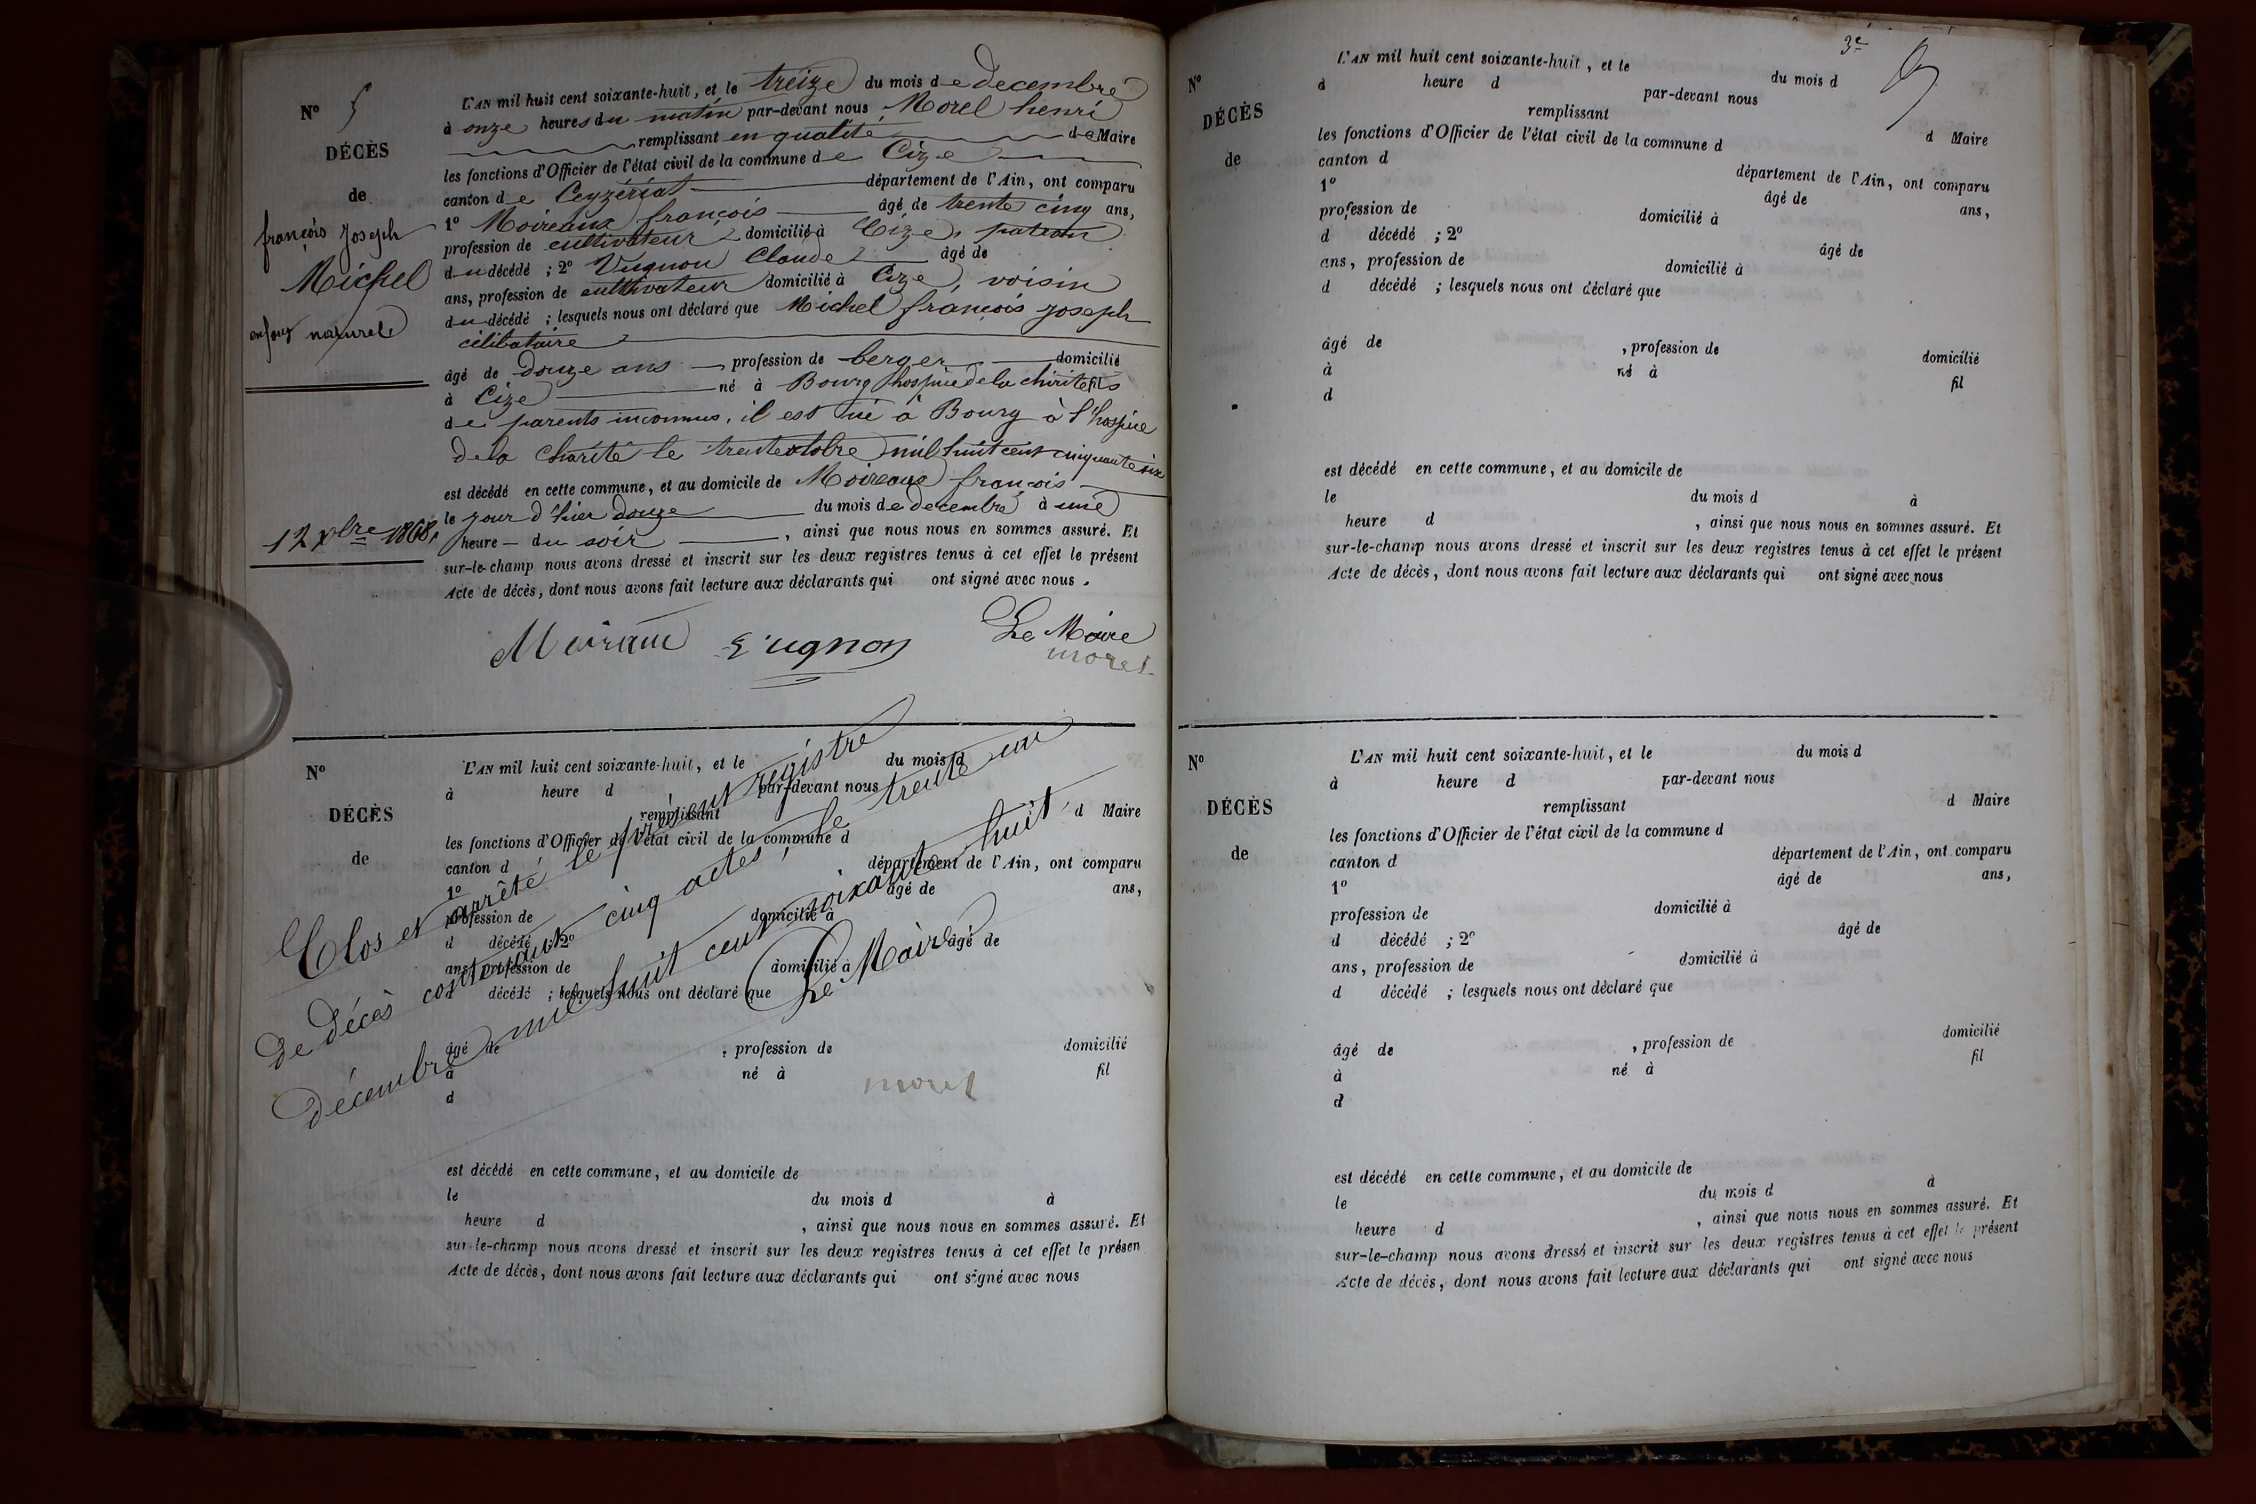 N° 5
DÉCÈS
de
françois joseph
Michel
enfant naturel
12 xbre 1868.
L'AN mil huit cent soixante-huit, et le treize du mois de decembre
à onze heures du matin par-devant nous Morel henri
remplissant en qualité de Maire
les fonctions d'Officier de l'état civil de la commune de Cize
canton de Ceyzériat département de l'Ain, ont comparu
1° Moireaux françois âgé de trente cinq ans,
profession de cultivateur domicilié à Cize, patron
du décédé ; 2° Vugnon Claude âgé de
ans, profession de cultivateur domicilié à Cize, voisin
du décédé ; lesquels nous ont déclaré que Michel françois joseph
célibataire
âgé de douze ans profession de berger domicilié
à Cize né à Bourg hospice de la chirité fils
de parents inconnus, il est né à Bourg à l'hospice
de la Charité le trente octobre mil huit cent cinquante six
est décédé en cette commune, et au domicile de Moireaux françois
le jour d'hier douze du mois de decembre à une
heure du soir , ainsi que nous nous en sommes assuré. Et
sur-le-champ nous avons dressé et inscrit sur les deux registres tenus à cet effet le présent
Acte de décès, dont nous avons fait lecture aux déclarants qui ont signé avec nous.
Moiraud Vugnon Le Maire
morel
N°
DÉCÈS
de
L'AN mil huit cent soixante-huit, et le du mois d
à heure d par-devant nous
remplissant d Maire
les fonctions d'Officier de l'état civil de la commune d
canton d département de l'Ain, ont comparu
1° âgé de ans,
profession de domicilié à
d décédé ; 2° âgé de
ans, profession de domicilié à
d décédé ; lesquels nous ont déclaré que
âgé de , profession de domicilié
à né à fil
d
Clos et arrêté le présent registre
de décès contenant cinq actes, le trente un
décembre mil huit cent soixante huit
Le Maire
morel
est décédé en cette commune, et au domicile de
le du mois d à
heure d , ainsi que nous nous en sommes assuré. Et
sur-le-champ nous avons dressé et inscrit sur les deux registres tenus à cet effet le présen
Acte de décès, dont nous avons fait lecture aux déclarants qui ont signé avec nous
3e
N°
DÉCÈS
de
L'AN mil huit cent soixante-huit, et le du mois d
à heure d par-devant nous
remplissant d Maire
les fonctions d'Officier de l'état civil de la commune d
canton d département de l'Ain, ont comparu
1° âgé de ans,
profession de domicilié à
d décédé ; 2° âgé de
ans, profession de domicilié à
d décédé ; lesquels nous ont déclaré que
âgé de , profession de domicilié
à né à fil
d
est décédé en cette commune, et au domicile de
le du mois d à
heure d , ainsi que nous nous en sommes assuré. Et
sur-le-champ nous avons dressé et inscrit sur les deux registres tenus à cet effet le présent
Acte de décès, dont nous avons fait lecture aux déclarants qui ont signé avec nous
N°
DÉCÈS
de
L'AN mil huit cent soixante-huit, et le du mois d
à heure d par-devant nous
remplissant d Maire
les fonctions d'Officier de l'état civil de la commune d
canton d département de l'Ain, ont comparu
1° âgé de ans,
profession de domicilié à
d décédé ; 2° âgé de
ans, profession de domicilié à
d décédé ; lesquels nous ont déclaré que
âgé de , profession de domicilié
à né à fil
d
est décédé en cette commune, et au domicile de
le du mois d à
heure d , ainsi que nous nous en sommes assuré. Et
sur-le-champ nous avons dressé et inscrit sur les deux registres tenus à cet effet le présent
Acte de décès, dont nous avons fait lecture aux déclarants qui ont signé avec nous